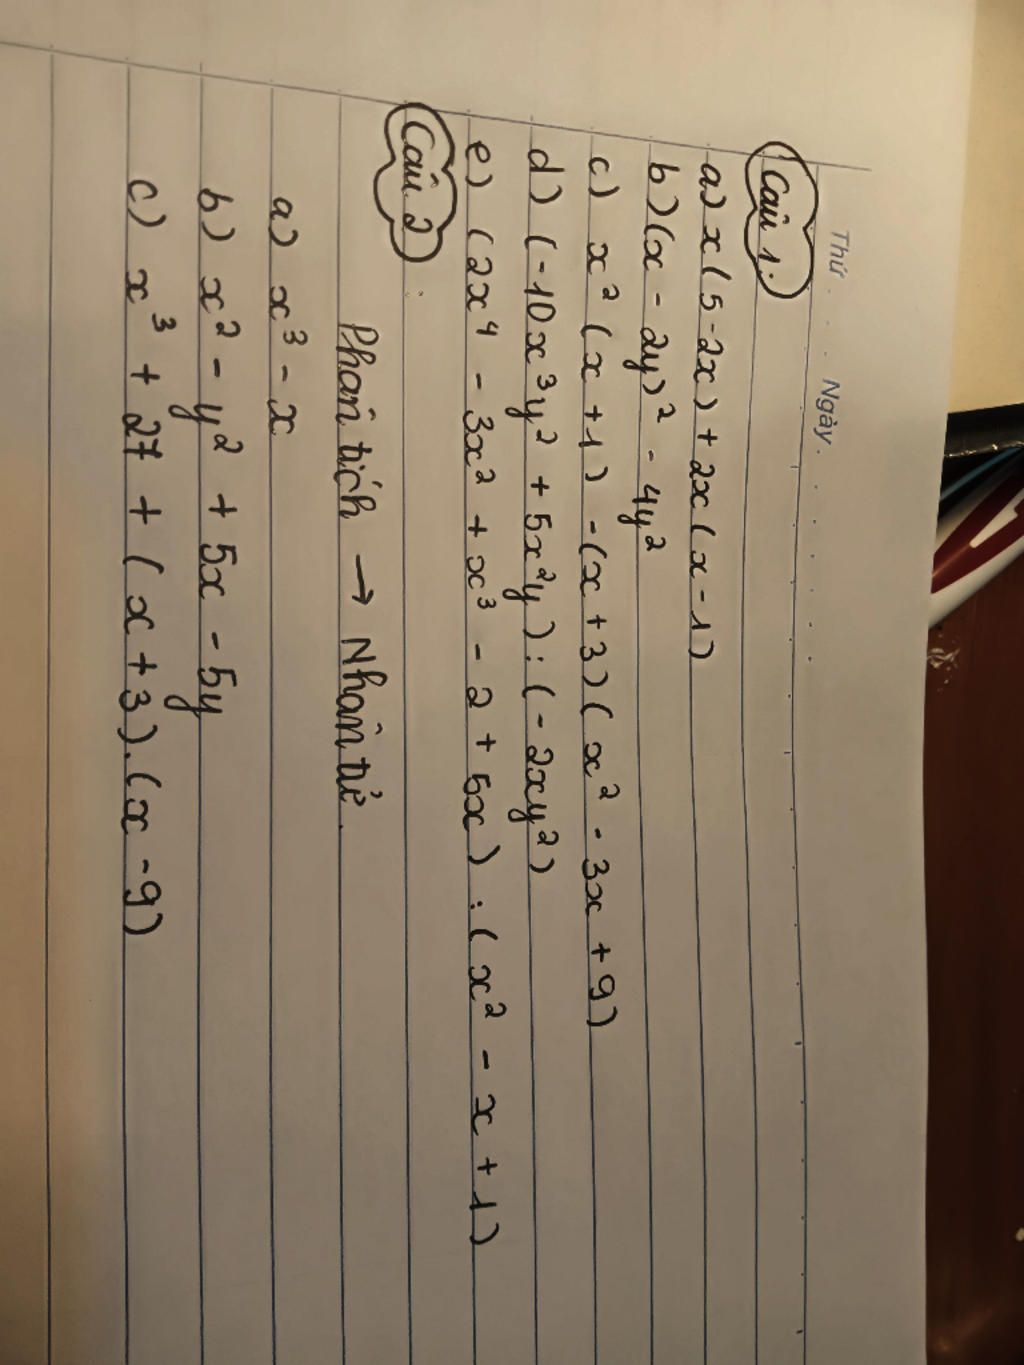 Thứ . . Ngày . . . . . . .
Câu 1:
a) x(5-2x) + 2x(x-1)
b) (x - 2y)² - 4y²
c) x² (x+1) - (x+3)(x² - 3x + 9)
d) (-10x³y² + 5x²y) : (-2xy²)
e) (2x⁴ - 3x² + x³ - 2 + 5x) : (x² - x + 1)
Câu 2
Phân tích → Nhân tử.
a) x³ - x
b) x² - y² + 5x - 5y
c) x³ + 27 + (x+3).(x-9)